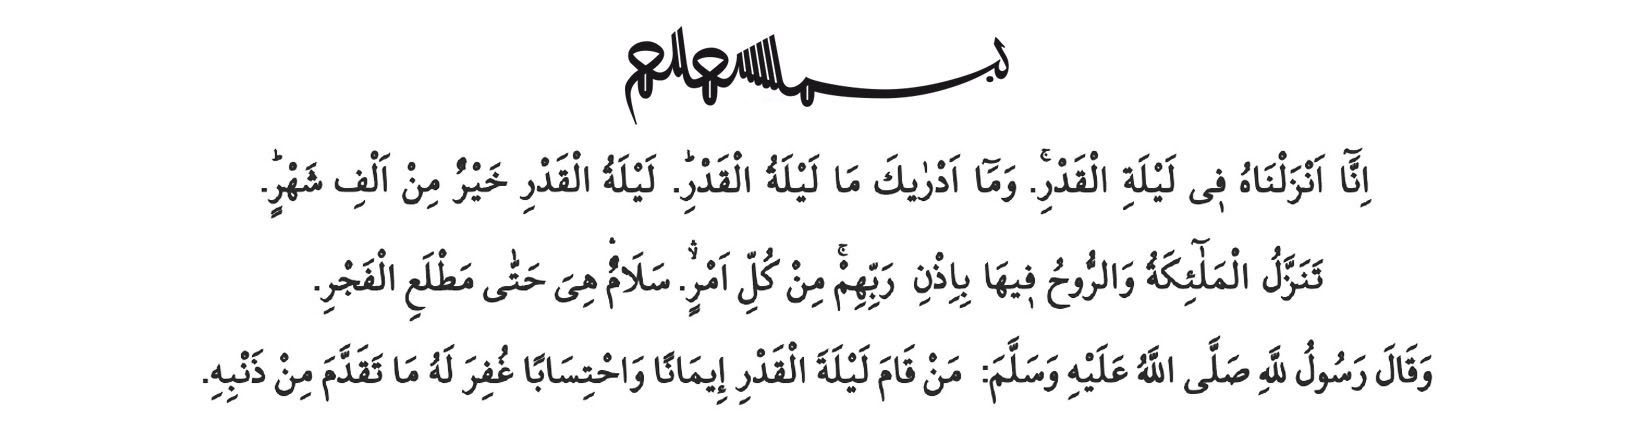 بسم الله الرحمن الرحيم
اِنَّٓا اَنْزَلْنَاهُ فٖى لَيْلَةِ الْقَدْرِۚ. وَمَٓا اَدْرٰيكَ مَا لَيْلَةُ الْقَدْرِؕ. لَيْلَةُ الْقَدْرِ خَيْرٌ مِنْ اَلْفِ شَهْرٍؕ.
تَنَزَّلُ الْمَلٰٓئِكَةُ وَالرُّوحُ فٖيهَا بِاِذْنِ رَبِّهِمْۚ مِنْ كُلِّ اَمْرٍۙ. سَلَامٌ۠ هِىَ حَتّٰى مَطْلَعِ الْفَجْرِ.
وَقَالَ رَسُولُ للَّهِ صَلَّى اللَّهُ عَلَيْهِ وَسَلَّمَ: مَنْ قَامَ لَيْلَةَ الْقَدْرِ إِيمَانًا وَاحْتِسَابًا غُفِرَ لَهُ مَا تَقَدَّمَ مِنْ ذَنْبِهِ.